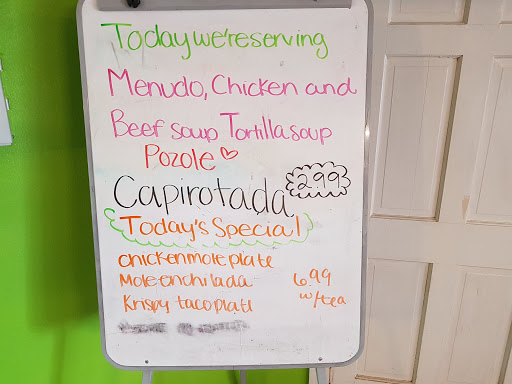 Today we're serving
Menudo, Chicken and
Beef soup Tortilla soup
Pozole
Capirotada 2.99
Today's Special
chicken mole plate
Mole enchilada 6.99
Krispy taco platt w/tea